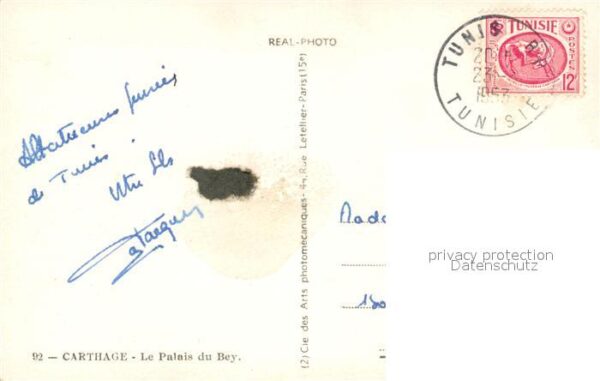 REAL-PHOTO
TUNISIE
POSTES
12F
TUNIS R.P.
1953
TUNISIE
Affectueuses pensées
de Tunis.
Votre fils
Jacques
(2) Cie des Arts photomécaniques - 44, Rue Letellier - Paris (15e)
Mada
privacy protection
Datenschutz
92 — CARTHAGE - Le Palais du Bey.